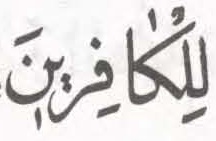 لِلْكٰافِرِينَ